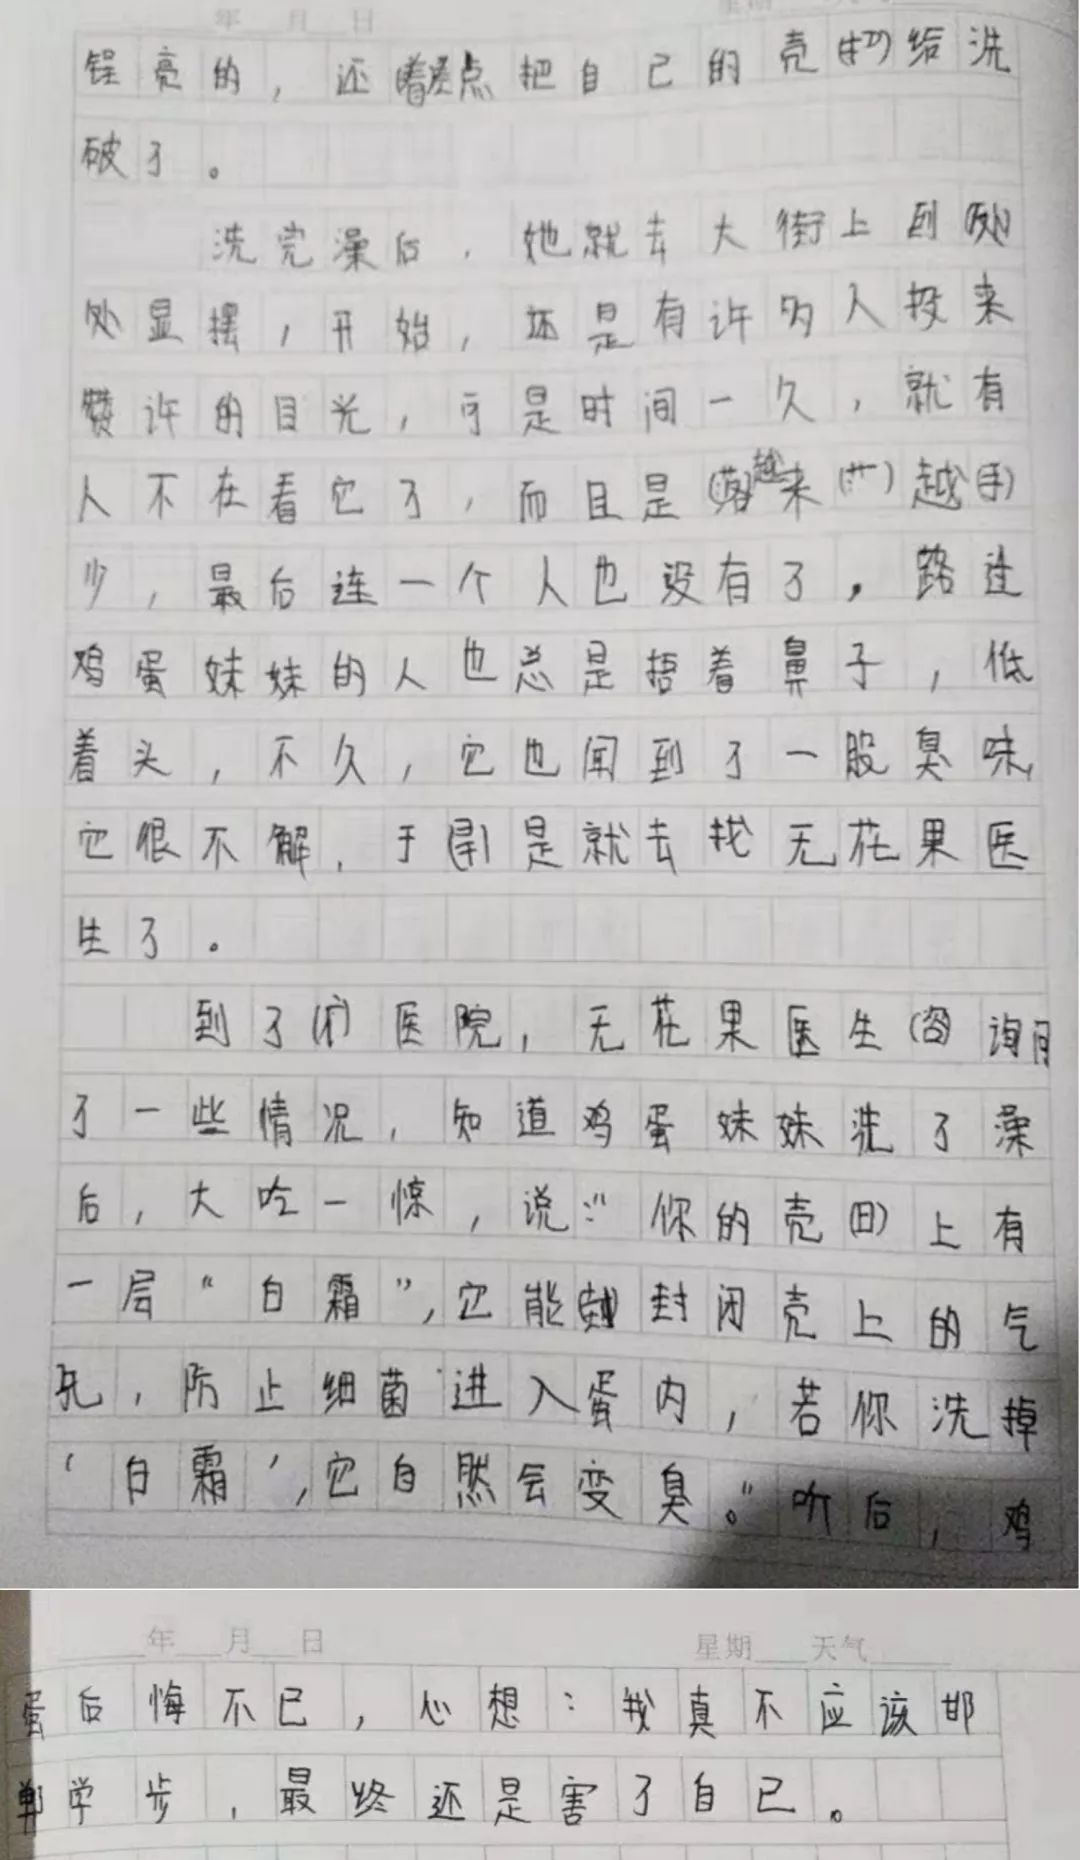 年 月 日 星期
锃亮的，还差点把自己的壳给洗
破了。
洗完澡后，她就去大街上到
处显摆，开始，还是有许多人投来
赞许的目光，可是时间一久，就有
人不在看它了，而且是越来越
少，最后连一个人也没有了。路过
鸡蛋妹妹的人也总是捂着鼻子，低
着头，不久，它也闻到了一股臭味，
它很不解，于是就去找无花果医
生了。
到了医院，无花果医生询问
了一些情况，知道鸡蛋妹妹洗了澡
后，大吃一惊，说：“你的壳上有
一层“白霜”，它能封闭壳上的气
孔，防止细菌进入蛋内，若你洗掉
‘白霜’，它自然会变臭。”听后，鸡
年 月 日 星期 天气
蛋后悔不已，心想：我真不应该邯
郸学步，最终还是害了自已。